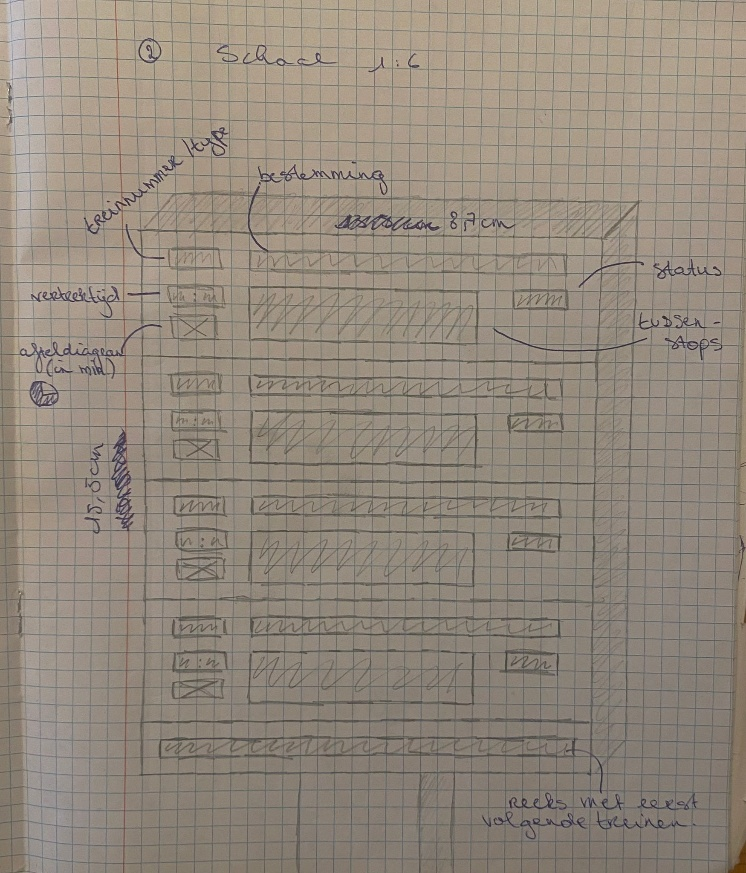 ② Schaal 1:6
treinnummer/type
bestemming
8,7cm
status
vertrektijd
n:n
tussen-
stops
afteldiagram
(in min)
n:n
15,5cm
n:n
n:n
reeks met eerst
volgende treinen.